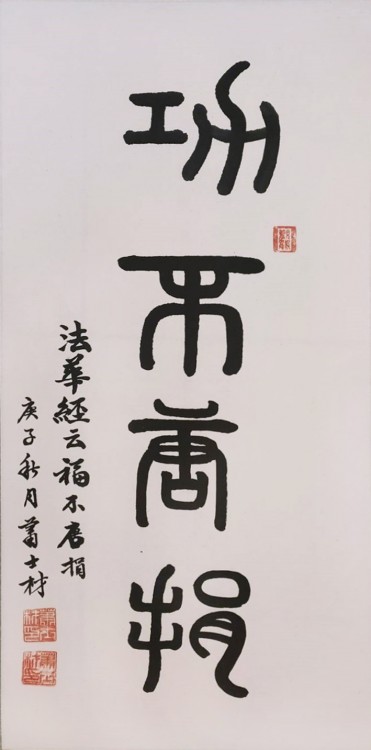 功不唐捐
法華經云福不唐捐
庚子秋月蕭士材